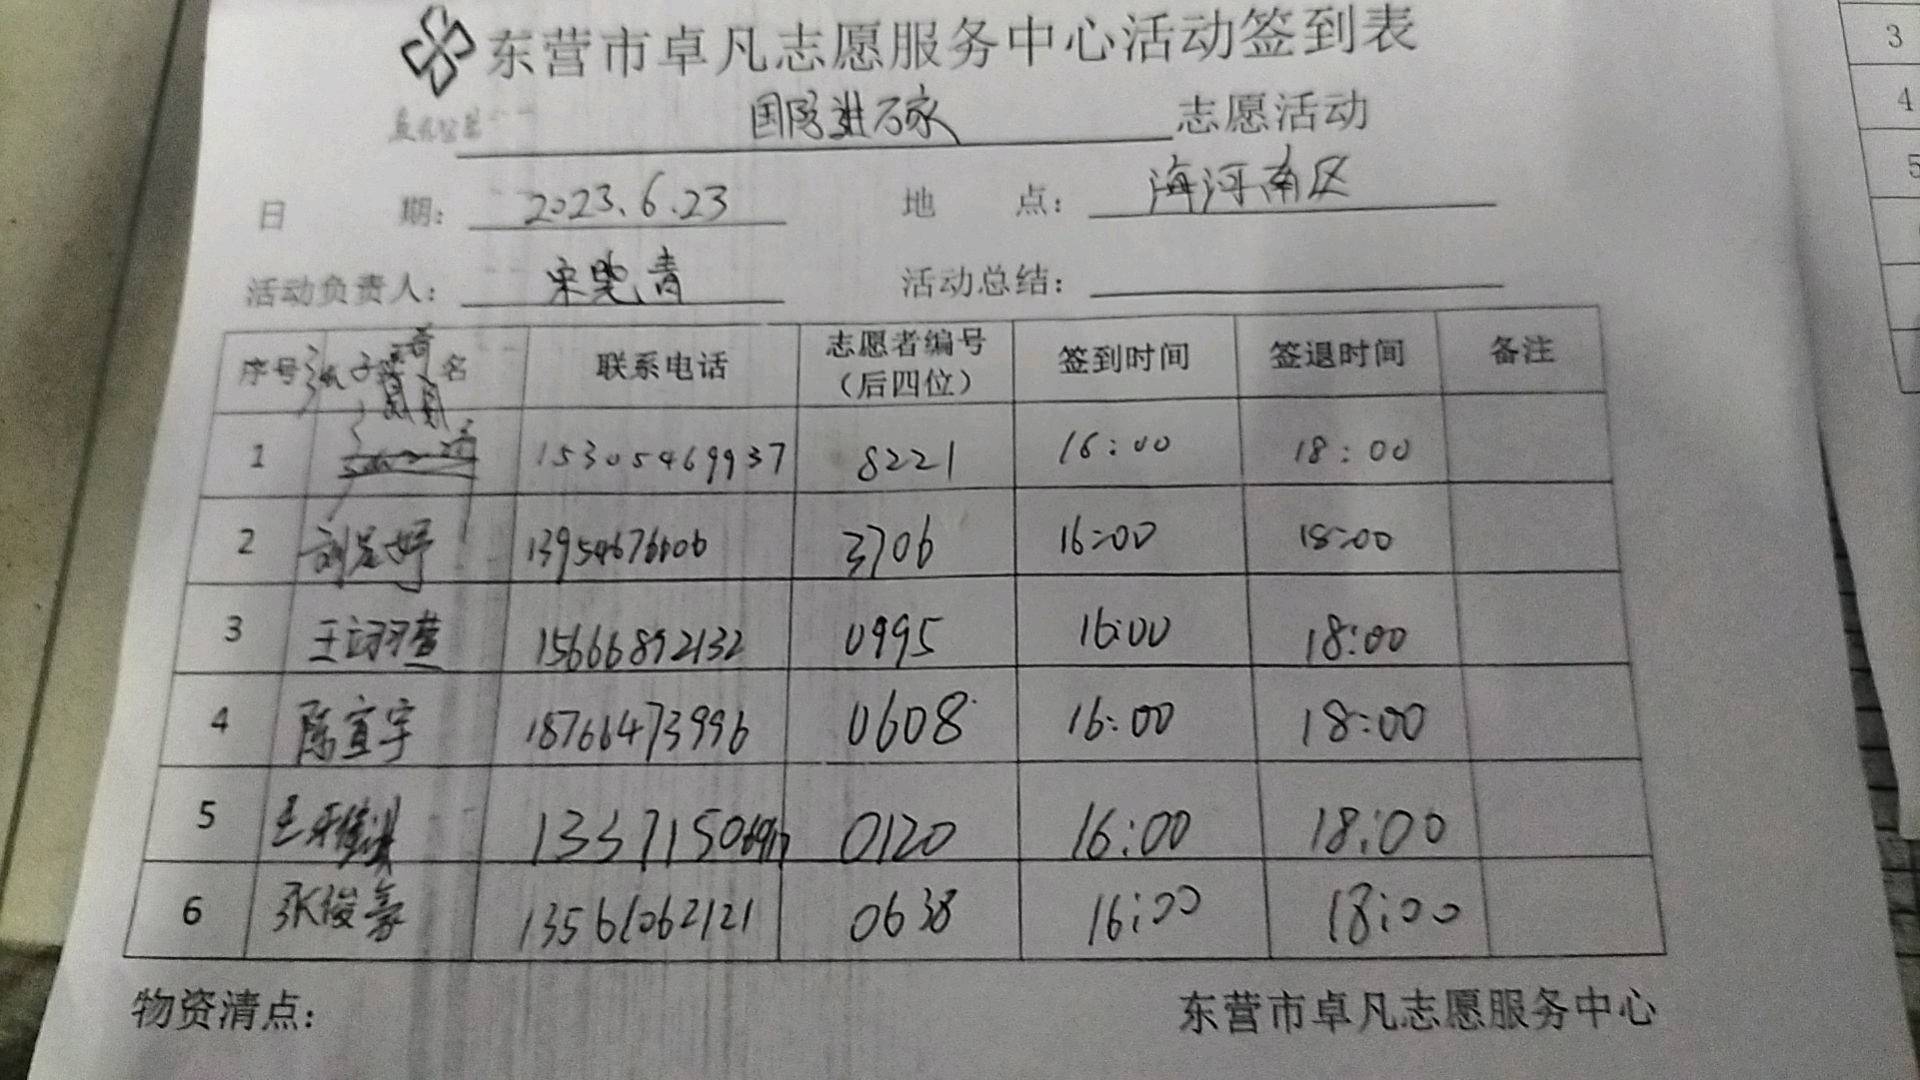 东营市卓凡志愿服务中心活动签到表
国防进万家 志愿活动
日 期: 2023.6.23 地 点: 海河南区
活动负责人: 宋晓青 活动总结:
序号 名 联系电话 志愿者编号（后四位） 签到时间 签退时间 备注
1 15305469937 8221 16:00 18:00
2 13954676606 3706 16:00 18:00
3 15666892132 0995 16:00 18:00
4 陈宣宇 18766473996 0608 16:00 18:00
5 0120 16:00 18:00
6 张俊豪 13561062121 0638 16:00 18:00
物资清点: 东营市卓凡志愿服务中心
3
4
5